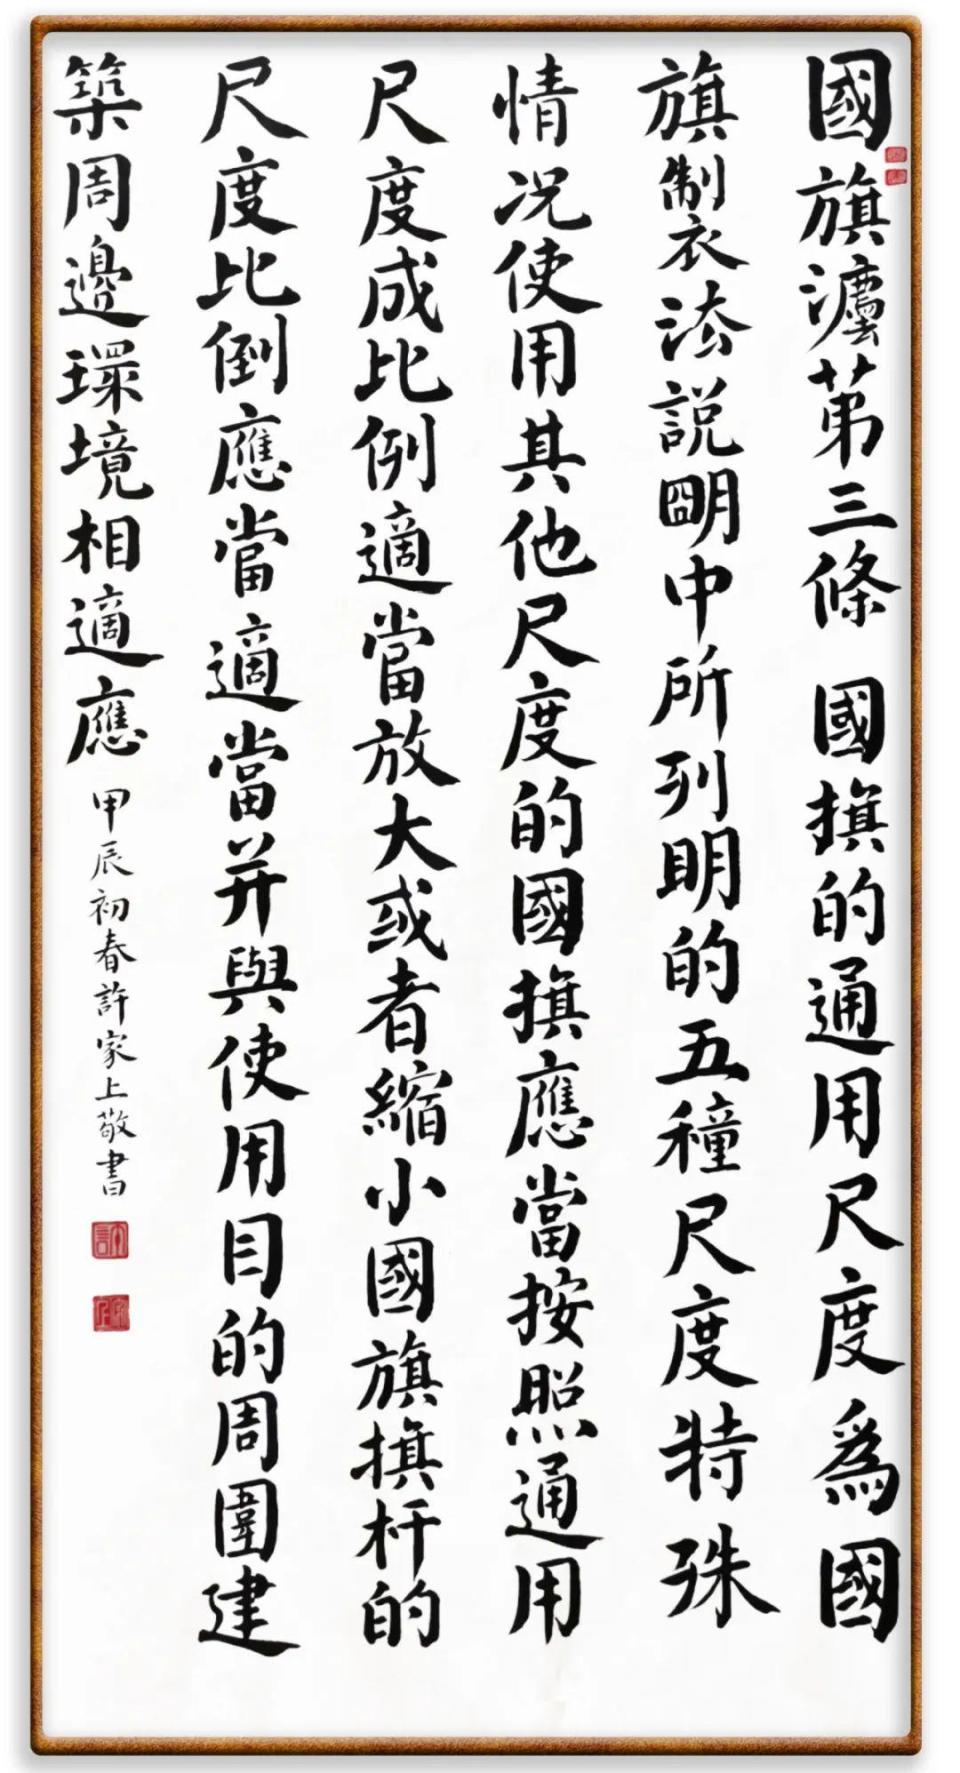 國旗灋苐三條 國旗的通用尺度為國
旗製法說明中所列明的五種尺度特殊
情况使用其他尺度的國旗應當按照通用
尺度成比例適當放大或者縮小國旗旗杆的
尺度比倒應當適當并與使用目的周圍建
築周邊環境相適應 甲辰初春許家上敬書